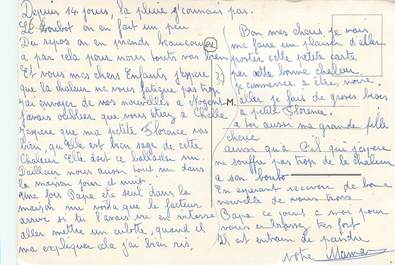 Depuis 14 jours, la pluie j'connais pas.
Le boulot on en fait un peu
Du repos on en prends beaucoup
a par cela pour nous touts va bien
Et vous mes chers Enfants j'espère
que la chaleur ne vous fatigue pas trop
j'ai envoyer de mes nouvelles à Nogent
j'avais oublier que vous étiez à Chelle
J'espère que ma petite Florence, va
bien, qu'Elle est bien sage de cette
chaleur Elle doit ce ballader nu.
D'ailleur nous aussi tout nu dans
la maison jour et nuit.
Une fois Papa etc seul dans la
maison me voila que le facteur
arrive si tu l'avais vu en vitesse
aller mettre un culotte, quand il
ma expliquer cela j'ai bien ris.
Bon mes cheris je vais
me faire un plaisir d'aller
poster cette petite carte
par cette bonne chaleur
je commence a être, noire.
aller je fais de grosses bises
a petite Florence.
a toi aussi ma grande fille
cherie
ainsi qu'a Gil qui j'espère
ne souffre pas trop de la chaleur
a son boulo
En esperant recevoir de bonne
nouvelle de vous trois
Papa ce joint a moi pour
vous embrassez tres fort
Il est entrain de peindre
votre Maman